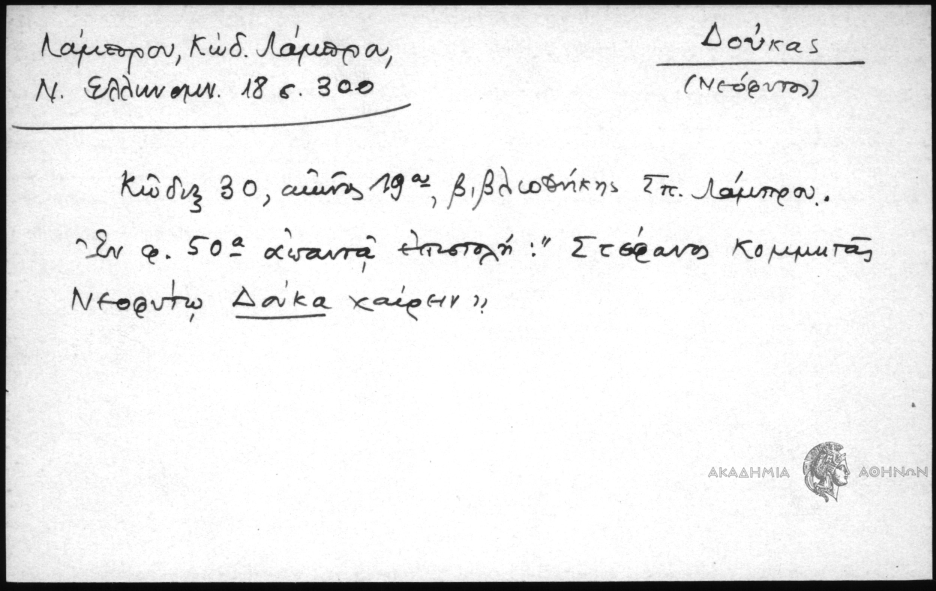 Λάμπρου, Κώδ. Λάμπρου,
Ν. Ελληνομν. 18 σ. 300
Δούκας
(Νεόφυτος)
Κώδιξ 30, αἰῶνος 19ου, βιβλιοθήκης Σπ. Λάμπρου.
Ἐν φ. 50α ἀπαντᾷ ἐπιστολή: "Στέφανος Κομμητᾶς
Νεοφύτῳ Δούκα χαίρειν"
ΑΚΑΔΗΜΙΑ ΑΘΗΝΩΝ